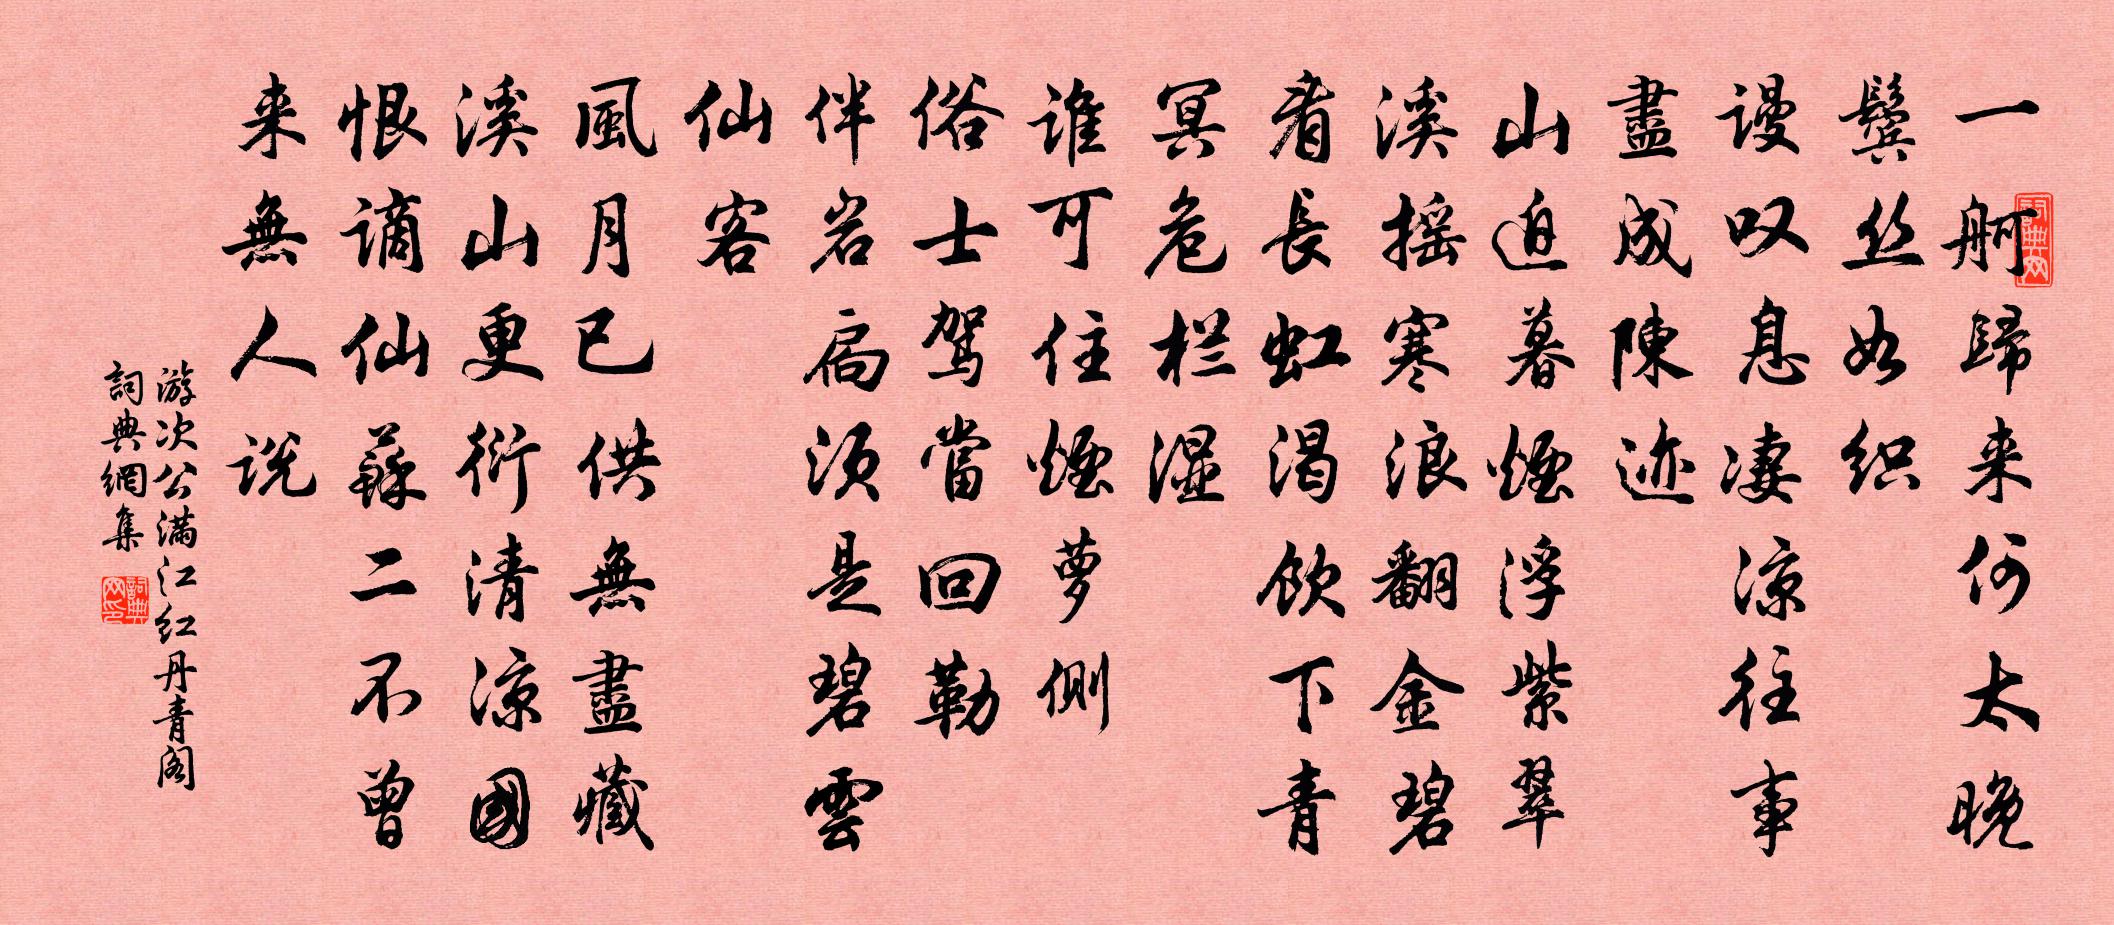 一舸歸来何太晚
鬓丝如织
谩叹息凄凉往事
盡成陳迹
山迫暮煙浮紫翠
溪摇寒浪翻金碧
看長虹渴飲下青
冥危栏湿
誰可住煙萝側
俗士駕當回勒
伴岩扃須是碧雲
仙客
風月已供無盡藏
溪山更衍清凉國
恨谪仙蘇二不曾
来無人说
游次公满江红丹青阁
詞典網集